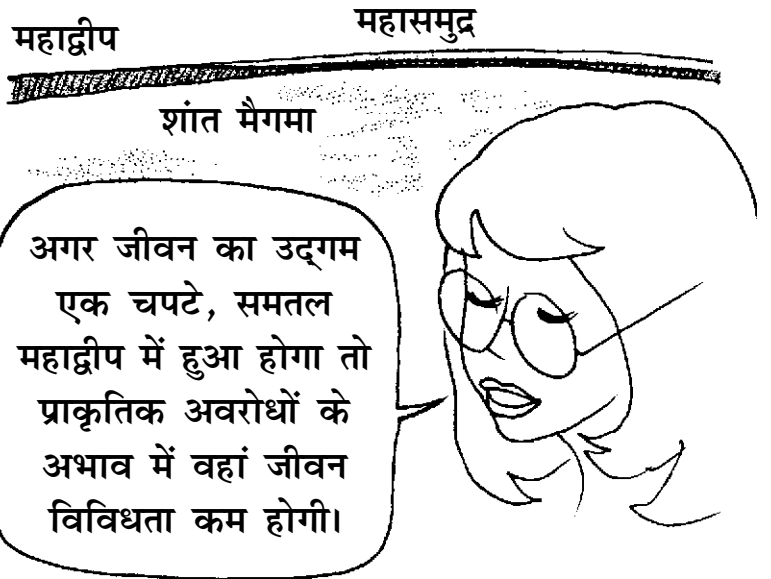 महाद्वीप
महासमुद्र
शांत मैगमा
अगर जीवन का उद्गम
एक चपटे, समतल
महाद्वीप में हुआ होगा तो
प्राकृतिक अवरोधों के
अभाव में वहां जीवन
विविधता कम होगी।